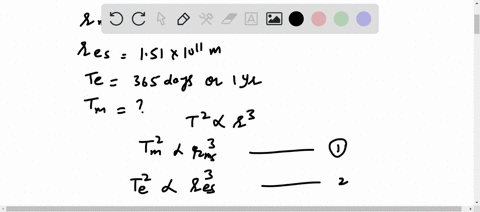 r_es = 1.51 × 10^11 m
Te = 365 days or 1 yr
Tm = ?
T² ∝ r³
Tm² ∝ r_ms³ —— ①
Te² ∝ r_es³ —— 2